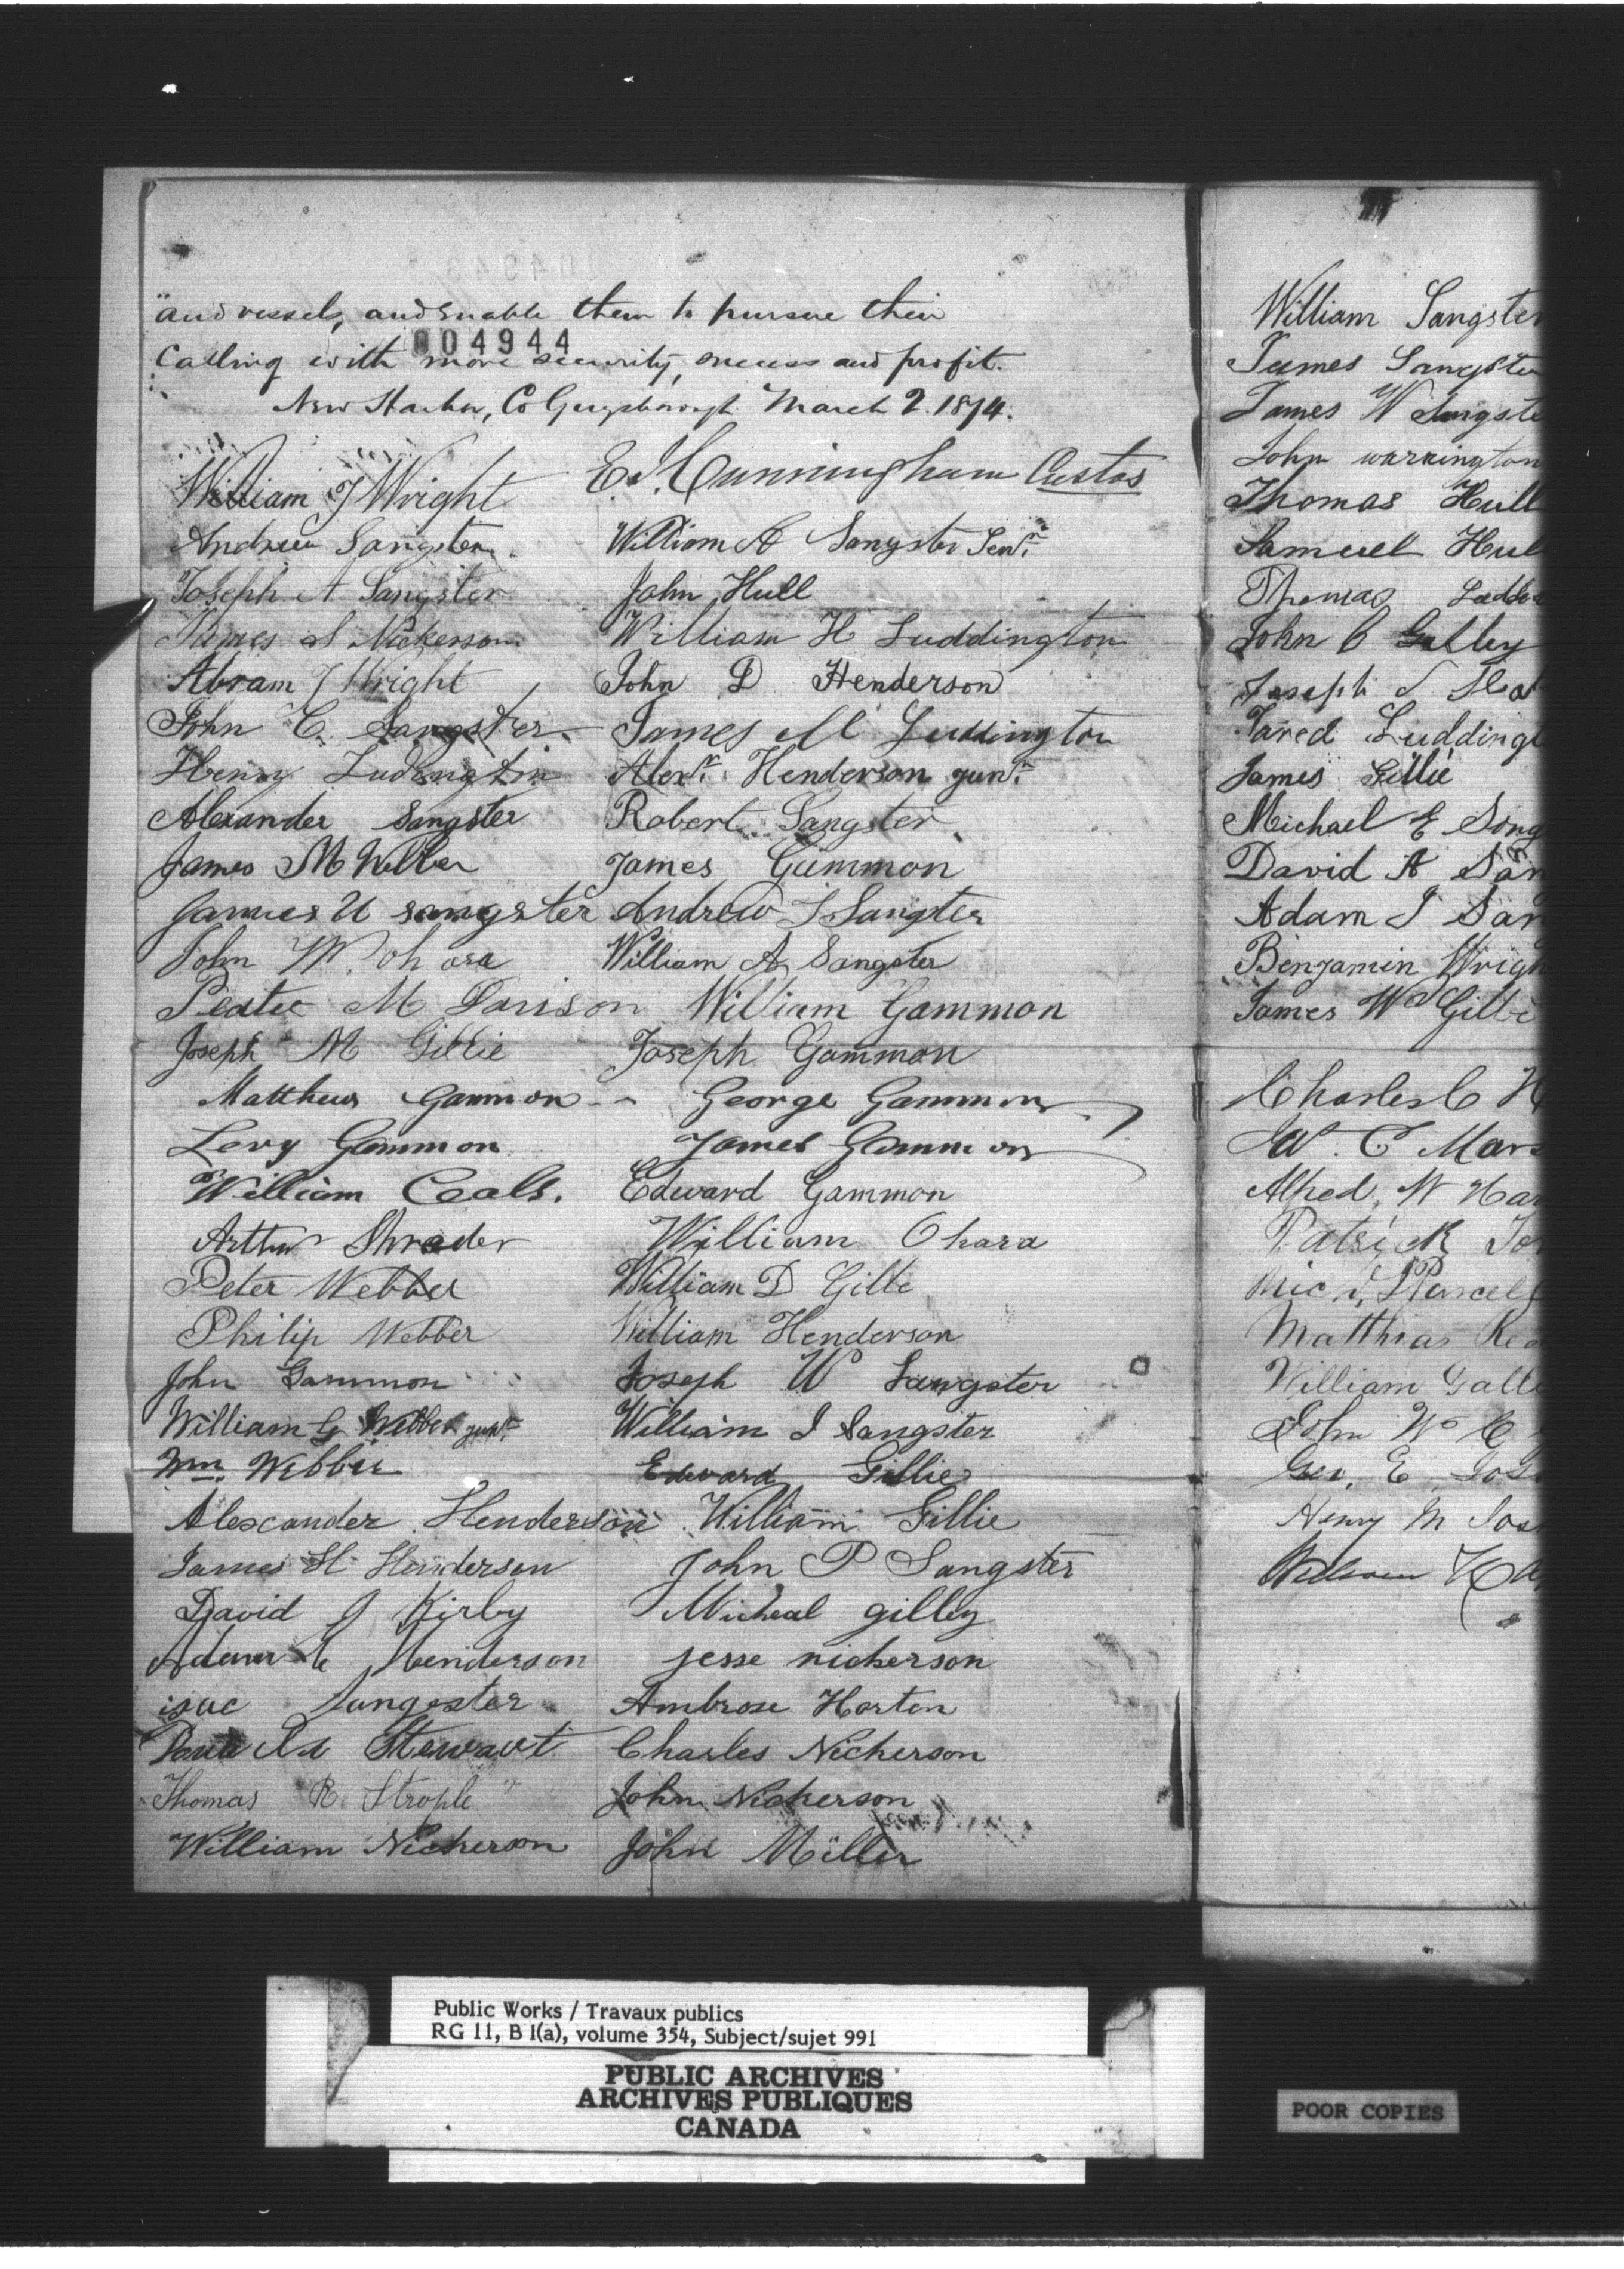 and vessels, and enable them to pursue their
004944
Calling with more security, success and profit.
New Harbor, Co Guysborough March 2. 1874.
William J Wright
Andrew Sangster
Joseph A Sangster
James S Nickerson
Abram J Wright
John C. Sangster
Henry Ludington
Alexander Sangster
James M Webber
James U sangster
John W. oh ara
Peatee M Davison
Joseph M Gillie
Matthew Gammon
Levy Gammon
William Ceals.
Arthur Shrader
Peter Webber
Philip Webber
John Gammon
William G Webber junr.
Wm Webber
Alexcander Henderson
James H Henderson
David J Kirby
Adam C Henderson
isac Sangester
Stewart
Thomas R. Strople
William Nickerson
E. J. Cunningham Custos
William A Sangster Senr.
John Hull
William H Luddington
John D Henderson
James M Luddington
Alexr. Henderson junr.
Robert Sangster
James Gammon
Andrew J Sangter
William A Sangster
William Gammon
Joseph Gammon
George Gammon
James Gammon
Edward Gammon
William Ohara
William D Gille
William Henderson
Joseph W Sangster
William J Sangster
Edward Gillie
William Gillie
John P Sangster
Micheal gilley
jesse nickerson
Ambrose Horton
Charles Nickerson
John Nickerson
John Miller
William Sangster
James Sangste
James W Sangste
John warrington
Thomas Hull
Samuel Hul
Thomas
John C Gulley
Joseph
Jared Luddingt
James Gillie
Michael E Sang
David A San
Adam J San
Benjamin Wrigh
James W Gilli
Charles C H
W. C Mars
Alfred W Har
Patrick
Mich. Purcell
Matthias
William Galle
John W C
Geo. E. Jos
Henry M Jos
William
Public Works / Travaux publics
RG 11, B 1(a), volume 354, Subject/sujet 991
PUBLIC ARCHIVES
ARCHIVES PUBLIQUES
CANADA
POOR COPIES